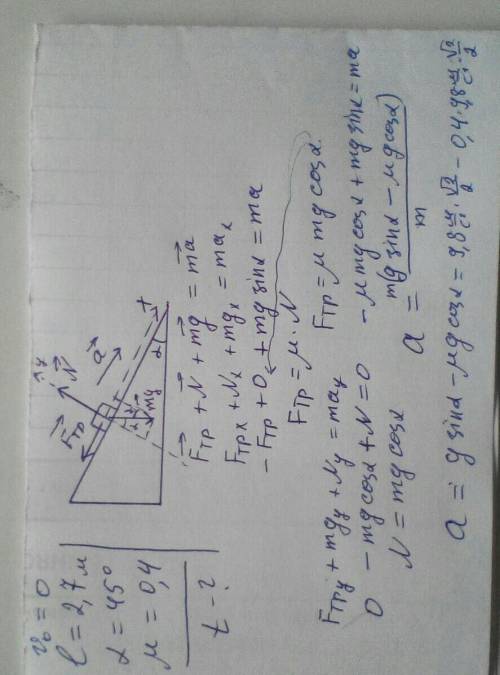 v₀ = 0
l = 2,7 м
α = 45°
μ = 0,4
t - ?
y
N⃗
F⃗тр
a⃗
α
mg
x
α
F⃗тр + N⃗ + mg⃗ = ma⃗
Fтрx + Nx + mgx = max
-Fтр + 0 + mg sinα = ma
Fтр = μ · N
Fтрy + mgy + Ny = may
0 - mg cosα + N = 0
N = mg cosα
Fтр = μ mg cosα
-μ mg cosα + mg sinα = ma
a = m(g sinα - μg cosα) / m
a = g sinα - μg cosα = 9,8 м/с² · √2/2 - 0,4 · 9,8 м/с² · √2/2